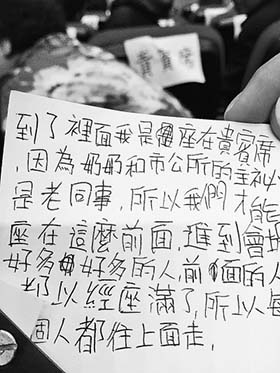 到了裡面我是座在貴賓席
，因為奶奶和市公所的主祕
是老同事，所以我們才能
座在這麼前面，進到會場
好多好多的人，前面的人
都以經座滿了，所以每
個人都往上面走，